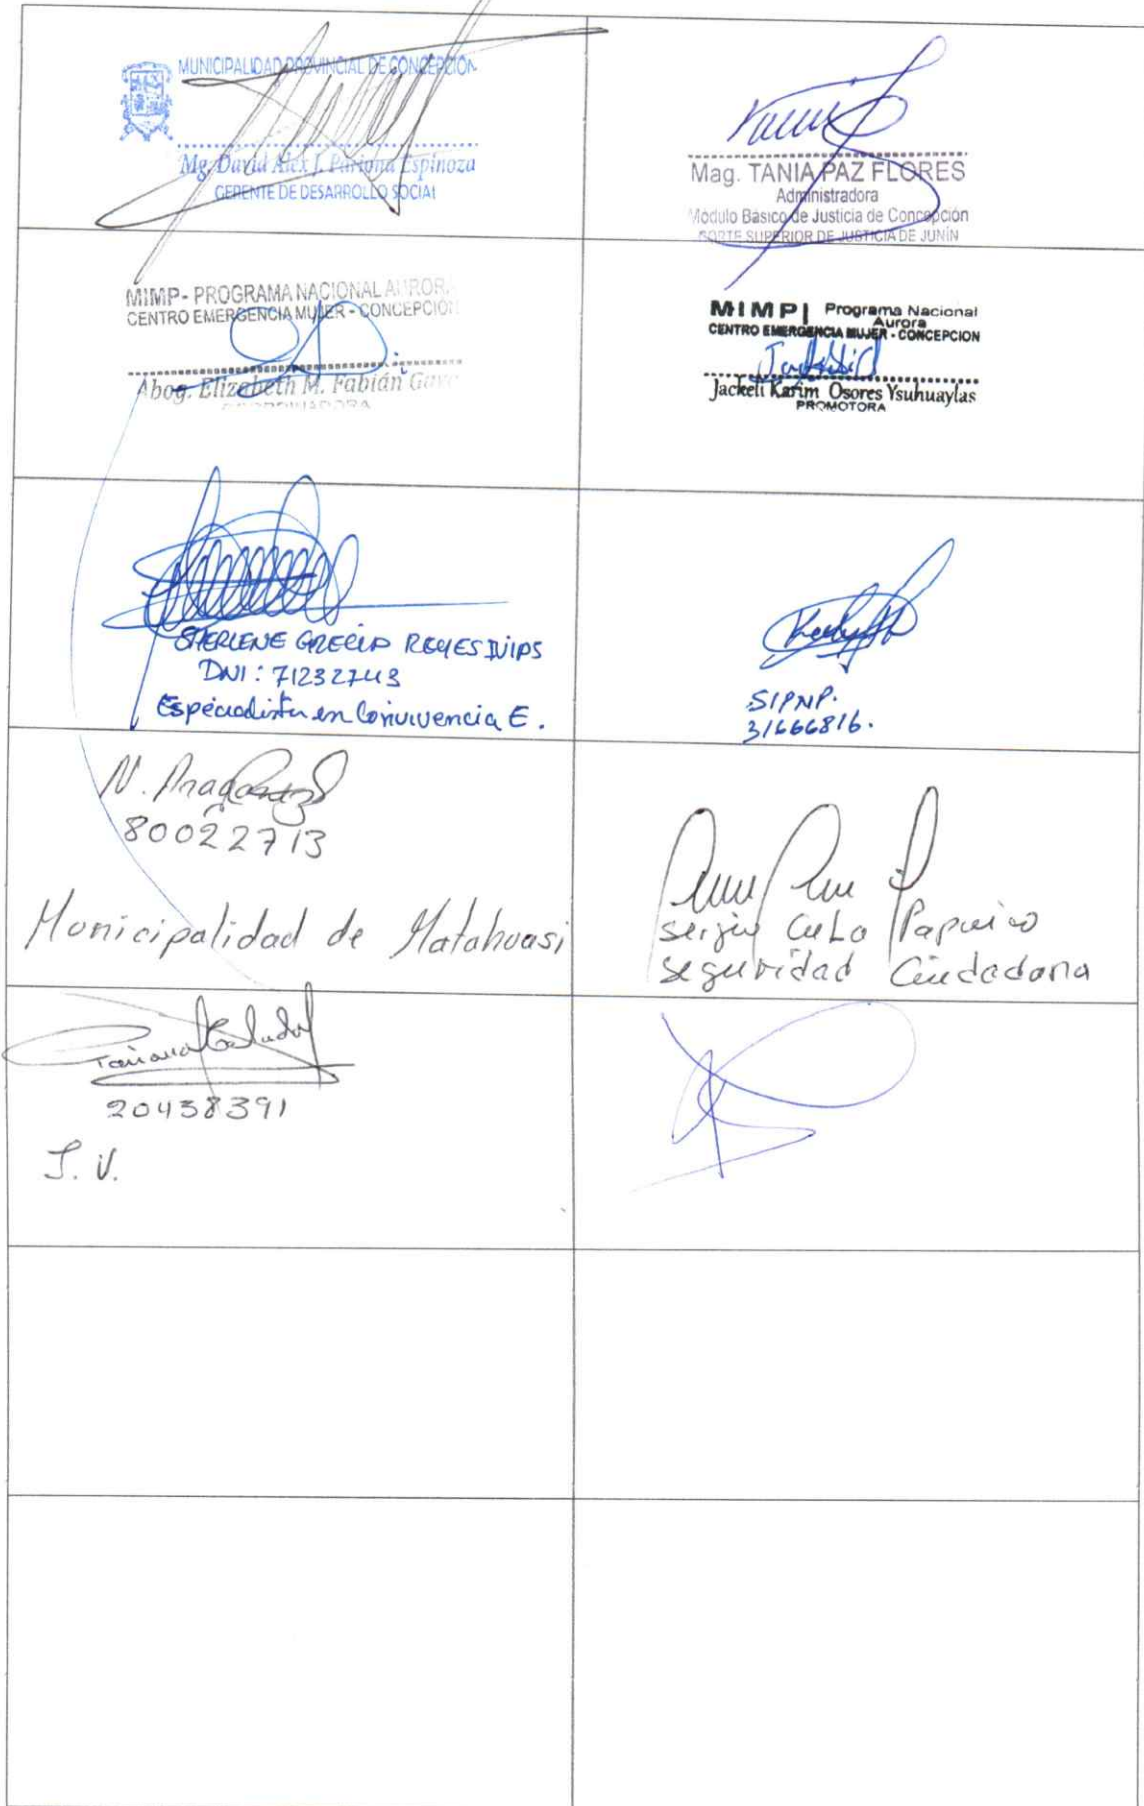 MUNICIPALIDAD PROVINCIAL DE CONCEPCIÓN
Mg. David Alex J. Pariona Espinoza
GERENTE DE DESARROLLO SOCIAL
Mag. TANIA PAZ FLORES
Administradora
Módulo Básico de Justicia de Concepción
CORTE SUPERIOR DE JUSTICIA DE JUNÍN
MIMP - PROGRAMA NACIONAL AURORA
CENTRO EMERGENCIA MUJER - CONCEPCION
Abog. Elizabeth M. Fabián
COORDINADORA
MIMP | Programa Nacional
Aurora
CENTRO EMERGENCIA MUJER - CONCEPCION
Jackeli Karim Osores Ysuhuaylas
PROMOTORA
GRECIA REYES
DNI: 71232743
Especialista en Convivencia E.
S1PNP.
31666816.
80022713
Municipalidad de Matahuasi
seguridad Ciudadana
20438391
J. V.